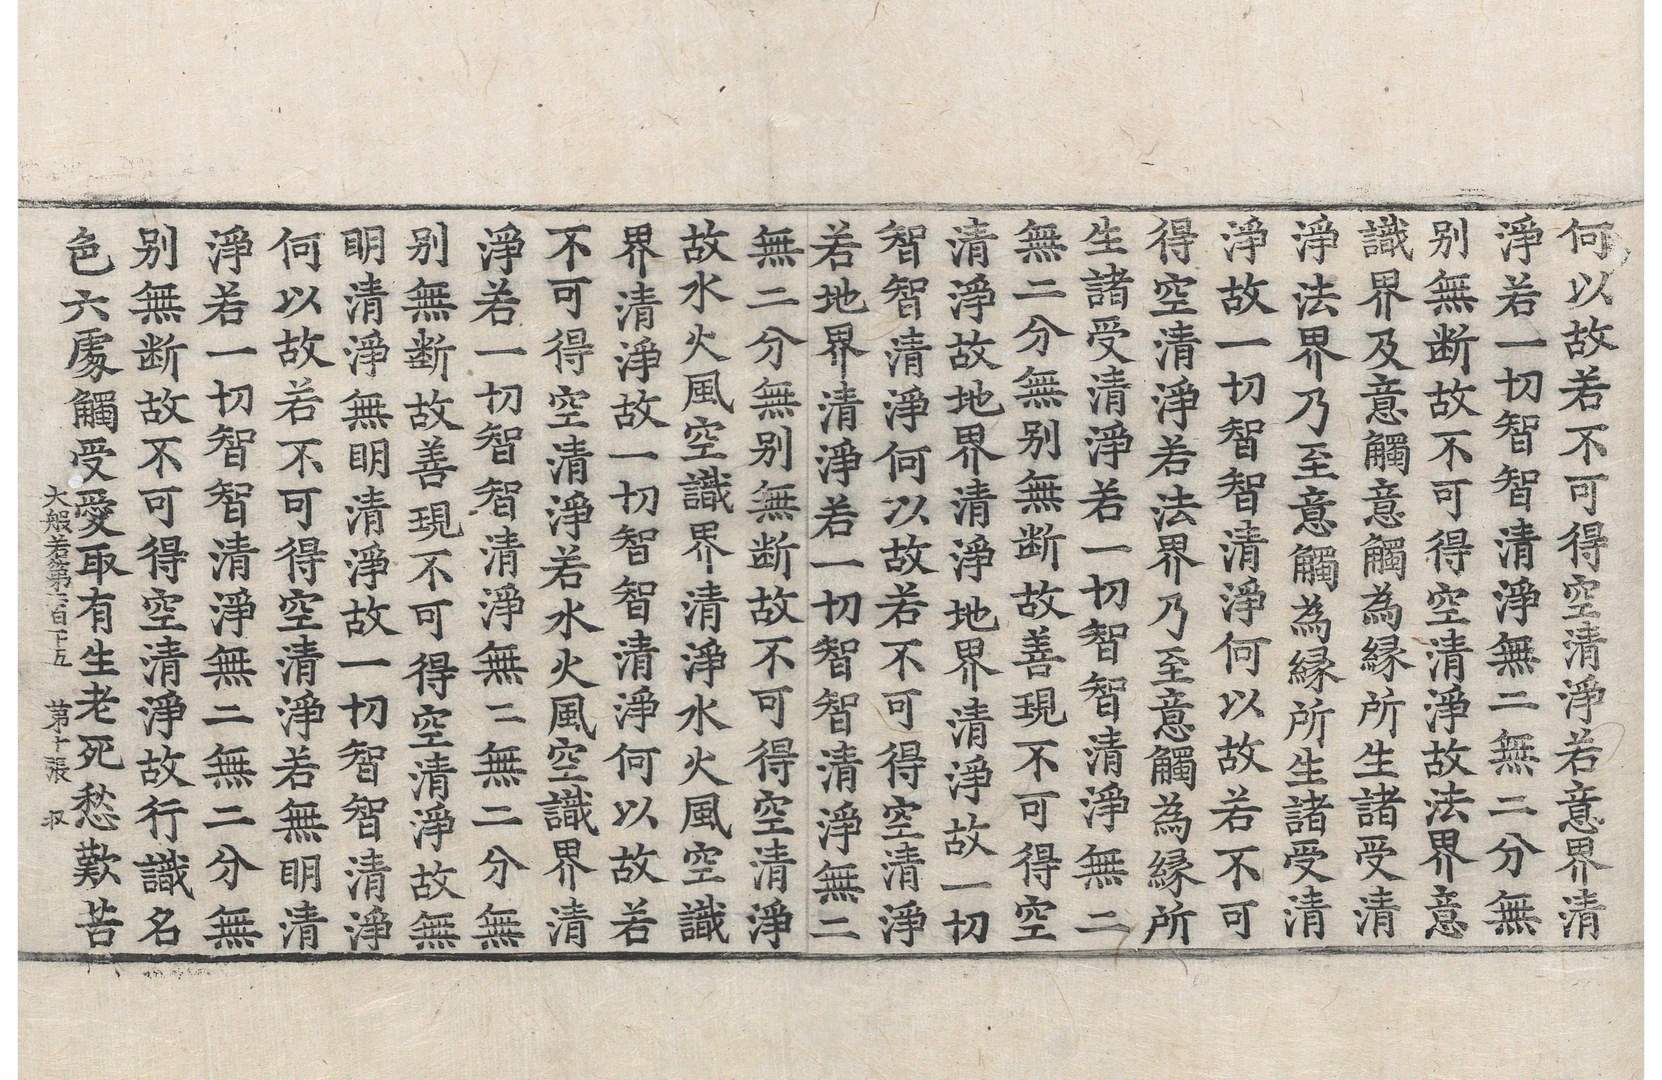 何以故若不可得空清淨若意界清
淨若一切智智清淨無二無二分無
别無断故不可得空清淨故法界意
識界及意觸意觸為緣所生諸受清
淨法界乃至意觸為緣所生諸受清
淨故一切智智清淨何以故若不可
得空清淨若法界乃至意觸為緣所
生諸受清淨若一切智智清淨無二
無二分無别無断故善現不可得空
清淨故地界清淨地界清淨故一切
智智清淨何以故若不可得空清淨
若地界清淨若一切智智清淨無二
無二分無别無断故不可得空清淨
故水火風空識界清淨水火風空識
界清淨故一切智智清淨何以故若
不可得空清淨若水火風空識界清
淨若一切智智清淨無二無二分無
别無斷故善現不可得空清淨故無
眀清淨無眀清淨故一切智智清淨
何以故若不可得空清淨若無眀清
淨若一切智智清淨無二無二分無
别無断故不可得空清淨故行識名
色六處觸受愛取有生老死愁歎苦
大般若第二百十五 第十張